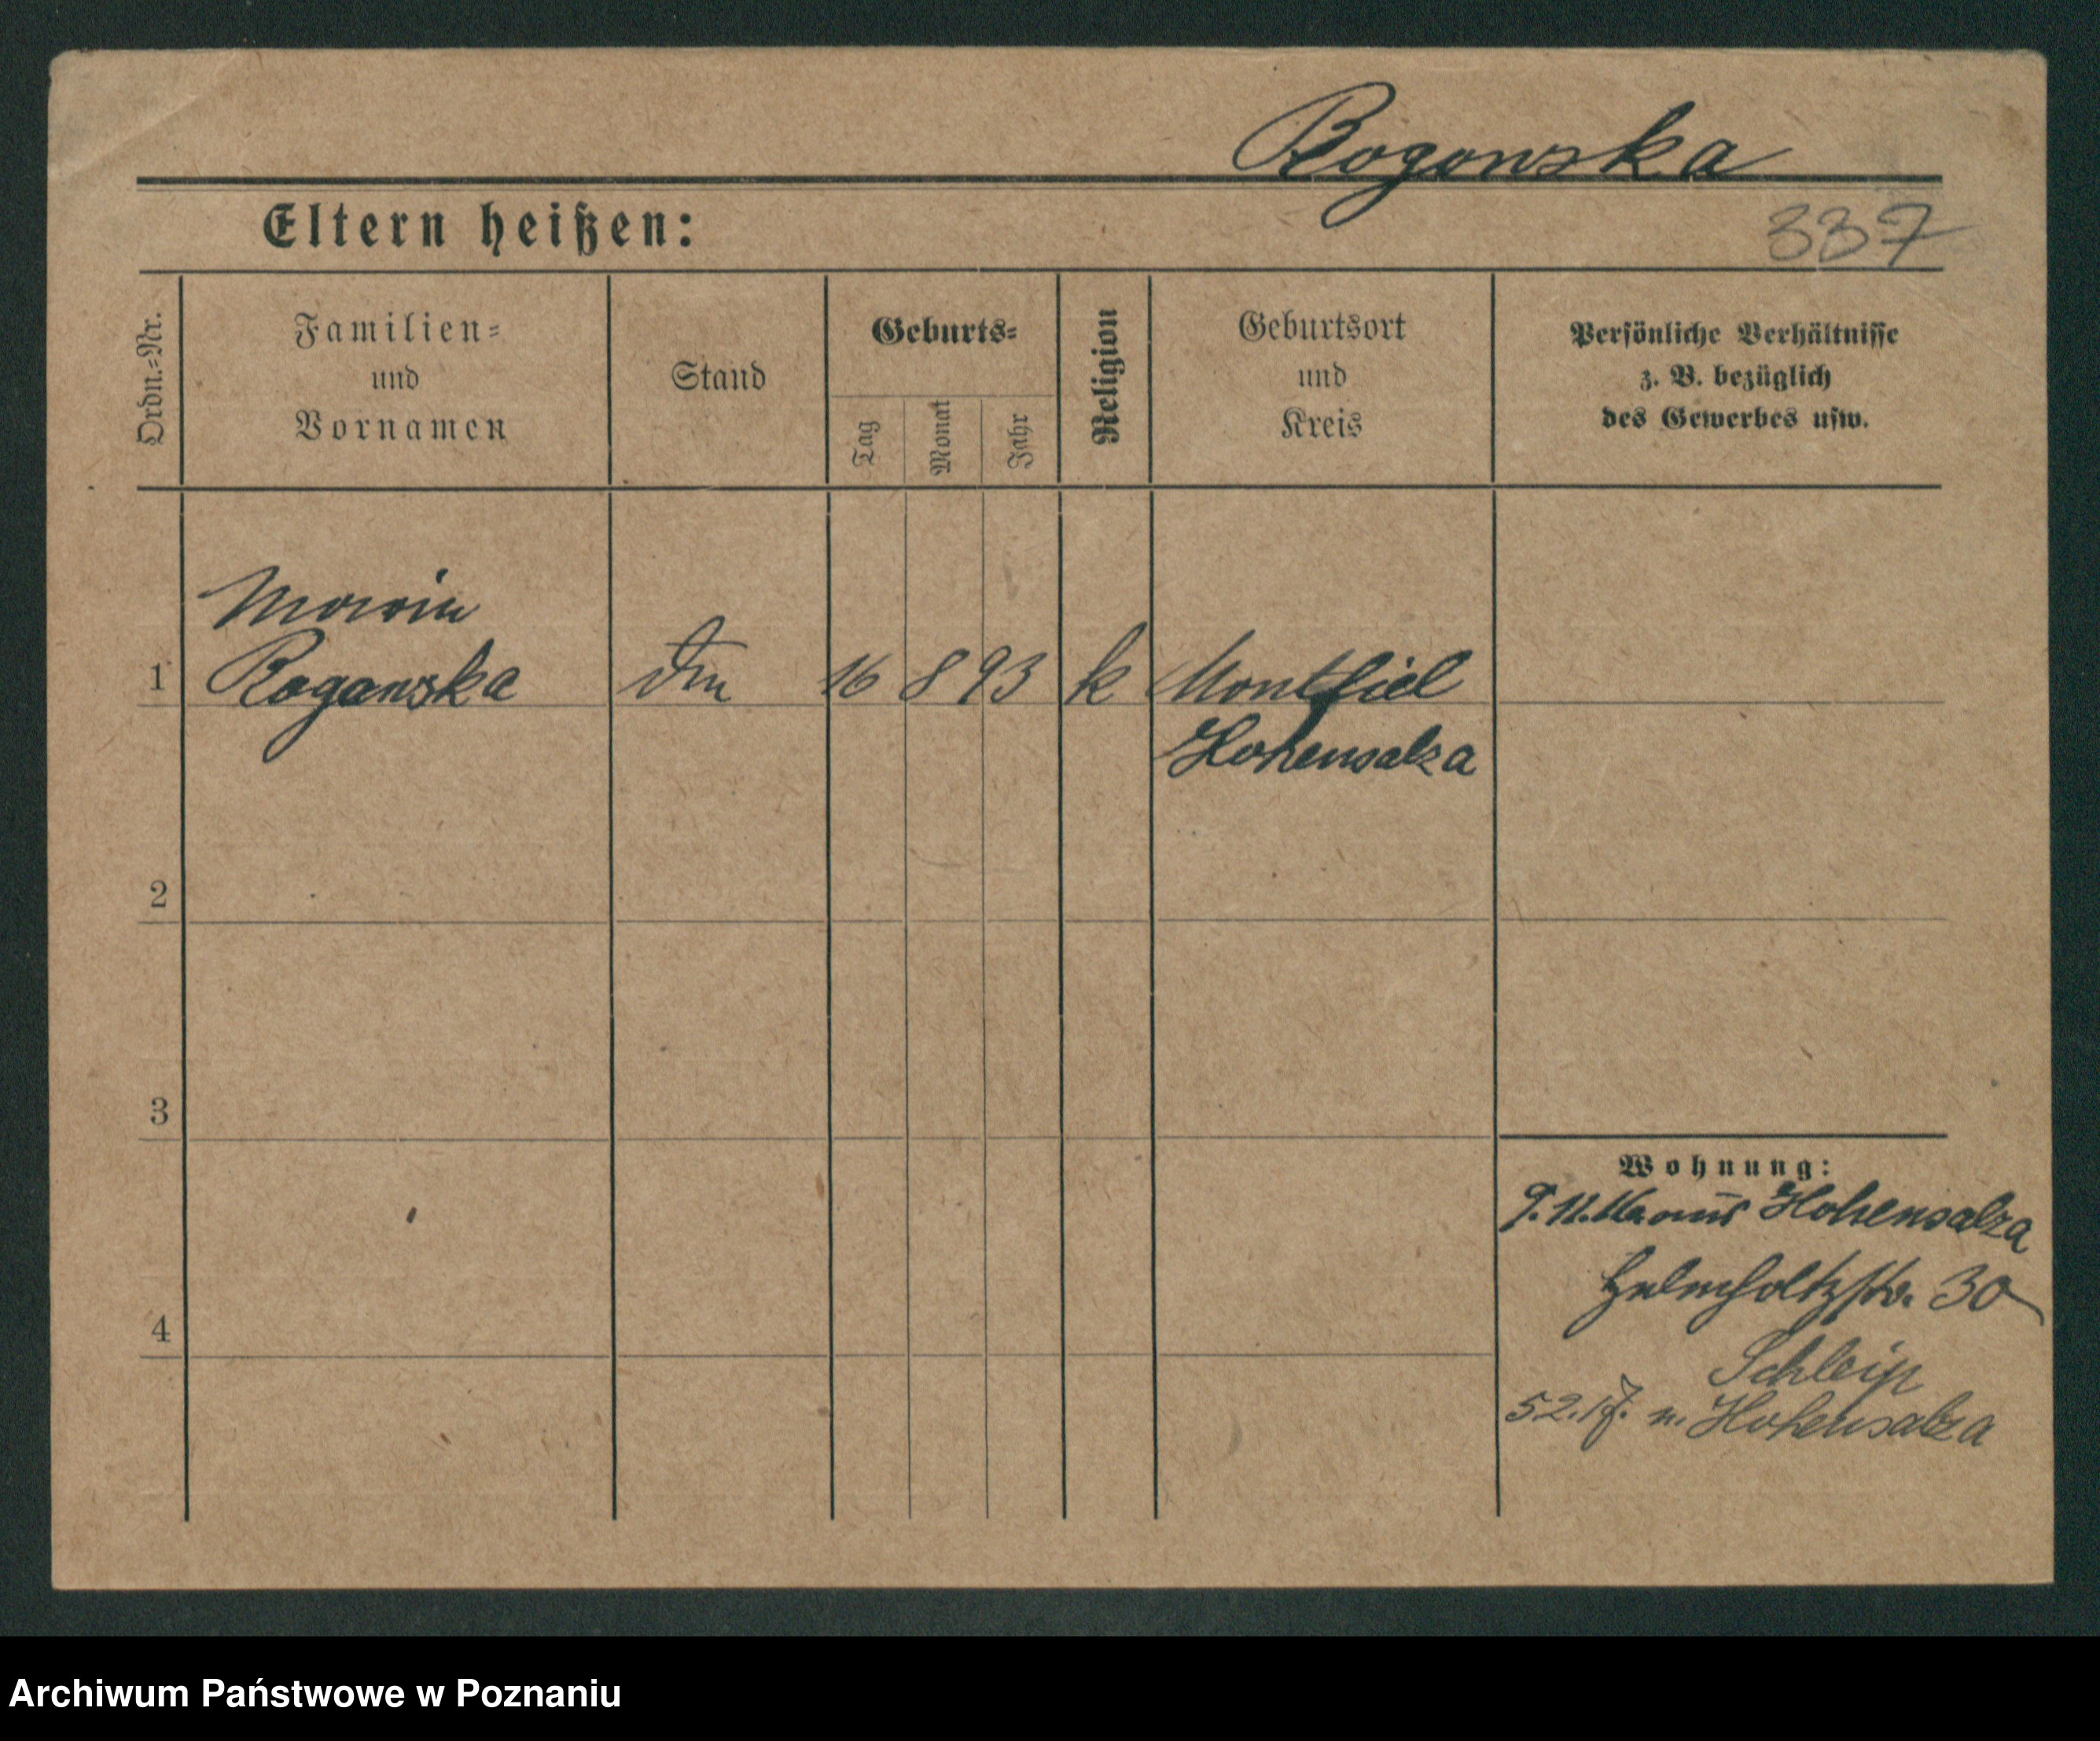 Rogowska
337
Eltern heißen:
Ordn.=Nr.
Familien=
und
Vornamen
Stand
Geburts=
Tag
Monat
Jahr
Religion
Geburtsort
und
Kreis
Persönliche Verhältnisse
z. B. bezüglich
des Gewerbes usw.
Maria
1 Rogowska 16 8 93 k
Hohensalza
2
3
4
Wohnung:
9.11.16. aus Hohensalza
Helmholtzstr. 30
5.2.17. n. Hohensalza
Archiwum Państwowe w Poznaniu